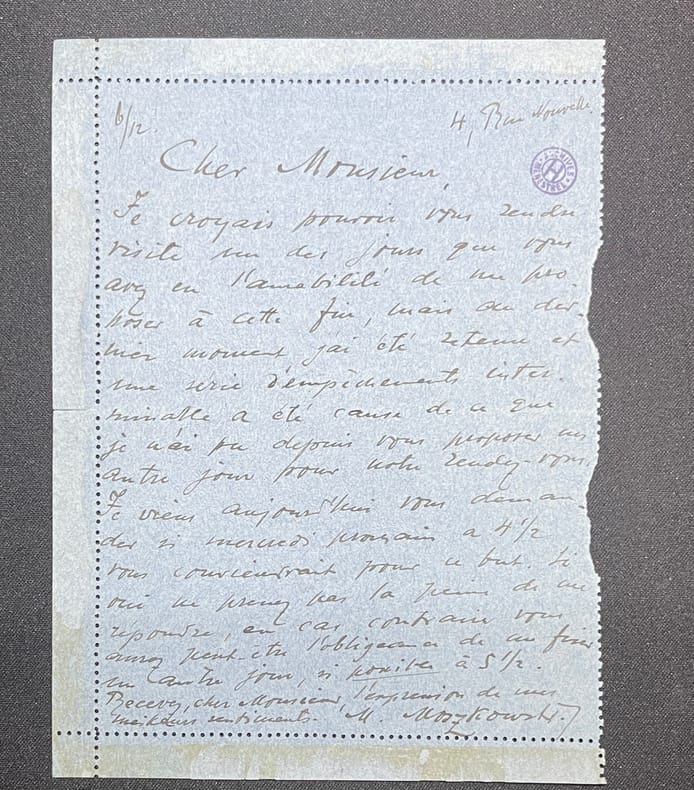 6/12.
4, Rue Nouvelle.
Cher Monsieur,
ARCHIVES MENESTREL H
Je croyais pouvoir vous rendre
visite un des jours que vous
avez eu l'amabilité de me pro-
poser à cette fin, mais au der-
nier moment j'ai été retenu et
une série d'empêchements inter-
minable a été cause de ce que
je n'ai pu depuis vous proposer un
autre jour pour notre rendez-vous.
Je viens aujourd'hui vous deman-
der si mercredi prochain à 4 1/2
vous conviendrait pour ce but. Si
oui ne prenez pas la peine de me
répondre, en cas contraire vous
aurez peut-être l'obligeance de me fixer
un autre jour, si possible à 5 1/2.
Recevez, cher Monsieur, l'expression de mes
meilleurs sentiments. M. Moszkowski